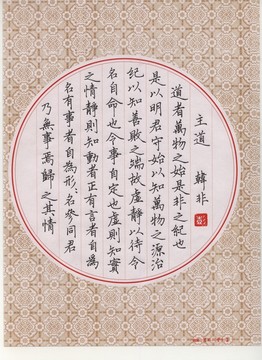 主道 韓非
道者萬物之始是非之紀也
是以明君守始以知萬物之源治
紀以知善敗之端故虛靜以待令
名自命也令事自定也虛則知實
之情靜則知動者正有言者自為
名有事者自為形〻名參同君
乃無事焉歸之其情